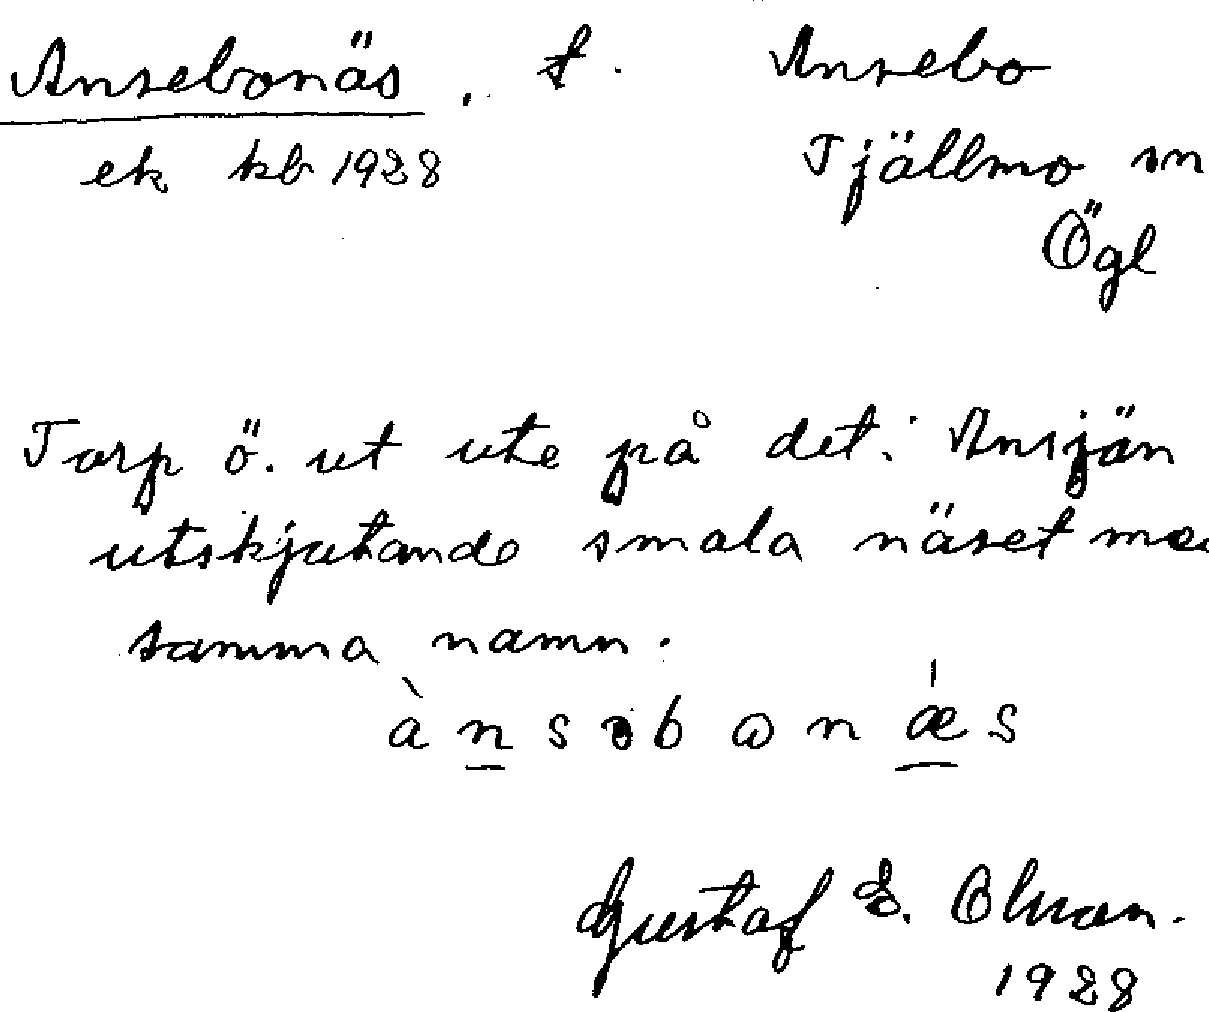 Ansebonäs, t. Ansebo
ek kb 1928 Tjällmo sn
Ögl
Torp ö. ut ute på det i Ansjön
utskjutande smala näset me
samma namn.
ànsəbɷnǽs
Gustaf E. Olsson.
1928